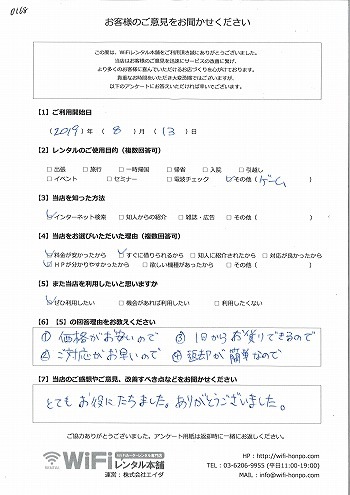 0168
お客様のご意見をお聞かせください
この度は、WiFiレンタル本舗をご利用頂き誠にありがとうございました。
当店はお客様のご意見を迅速にサービスの改善に繋げ、
より多くのお客様に喜んでいただけるお店づくりを心がけております。
貴重なお時間をいただき大変恐縮ではございますが、
以下のアンケートにお答えいただければ幸いでございます。
【1】ご利用開始日
(2019) 年 ( 8 ) 月 ( 13 ) 日
【2】レンタルのご使用目的（複数回答可）
□出張 □旅行 □一時帰国 □帰省 □入院 □引越し
□イベント □セミナー □電波チェック ☑その他（ゲーム）
【3】当店を知った方法
☑インターネット検索 □知人からの紹介 □雑誌・広告 □その他（ ）
【4】当店をお選びいただいた理由（複数回答可）
☑料金が安かったから ☑すぐに借りられるから □知人に紹介されたから □対応が良かったから
☑ＨＰが分かりやすかったから □欲しい機種があったから □その他（ ）
【5】また当店を利用したいと思いますか
☑ぜひ利用したい □機会があれば利用したい □利用したくない
【6】【5】の回答理由をお教えください
① 価格がお安いので ③ 1日からお借りできるので
② ご対応がお早いので ④ 返却が簡単なので
【7】当店のご感想やご意見、改善すべき点などをお聞かせください
とてもお役にたちました。ありがとうございました。
ご協力ありがとうございました。アンケート用紙は返却時に一緒にお返しください。
WiFiルーターレンタル専門店
WiFiレンタル本舗
運営：株式会社エイダ
HP：http://wifi-honpo.com
TEL：03-6206-9955 (平日11:00-19:00)
MAIL：info@wifi-honpo.com